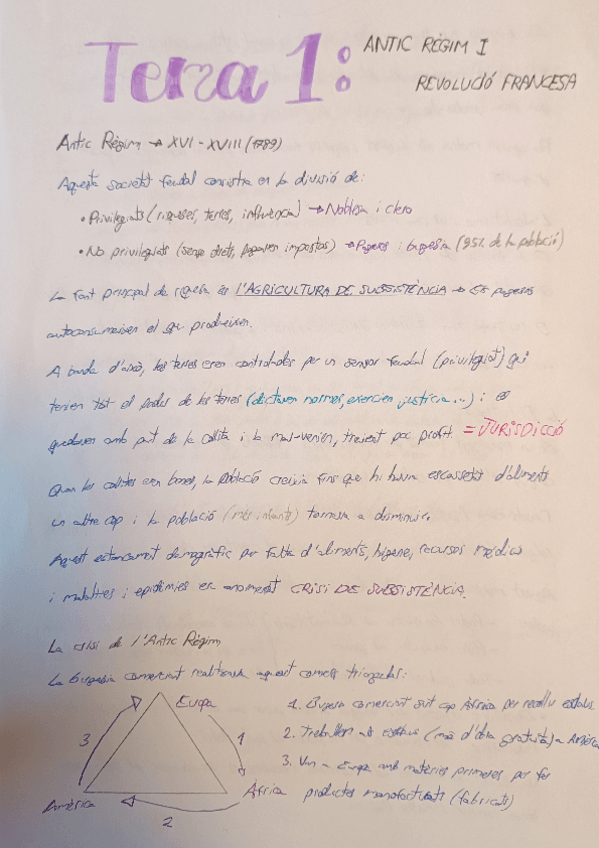 Tema 1:
ANTIC RÈGIM I
REVOLUCIÓ FRANCESA
Antic Règim → XVI - XVIII (1789)
Aquesta societat feudal consistia en la divisió de:
• Privilegiats (riqueses, terres, influència) → Noblesa i clero
• No privilegiats (sense drets, pagaven impostos) → Pagesos i burgesia (95% de la població)
La font principal de riquesa és L'AGRICULTURA DE SUBSISTÈNCIA → Els pagesos
autoconsumeixen el que produeixen.
A banda d'això, les terres eren controlades per un senyor feudal (privilegiat) qui
tenien tot el poder de les terres (dictaven normes, exercien justícia...) i es
quedaven amb part de la collita i la mal-venien, traient poc profit. = JURISDICCIÓ
Quan les collites eren bones, la població creixia fins que hi havia escassetat d'aliments
un altre cop i la població (més infants) tornava a disminuir.
Aquest estancament demogràfic per falta d'aliments, higiene, recursos mèdics
i malalties i epidèmies és anomenat CRISI DE SUBSISTÈNCIA.
La crisi de l'Antic Règim
La burgesia comerciant realitzava aquest comerç triangular:
Europa
1. Europa comerciant surt cap Àfrica per recollir esclaus
3
1
2. Treballen els esclaus (mà d'obra gratuïta) a Amèrica
3. Van a Europa amb matèries primeres per fer
Amèrica
Àfrica
productes manofacturats (fabricats)
2